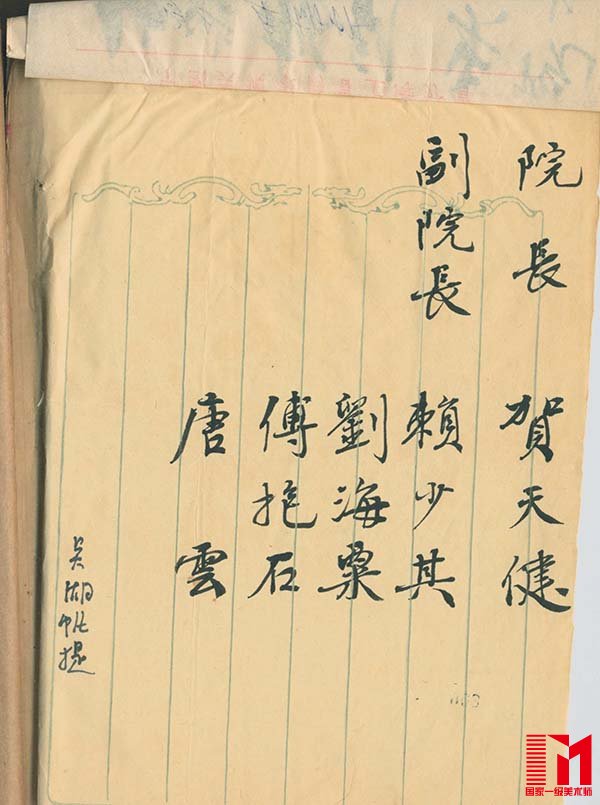 院長 賀天健
副院長 賴少其
劉海粟
傅抱石
唐雲
吴湖帆提
国家一级美术师